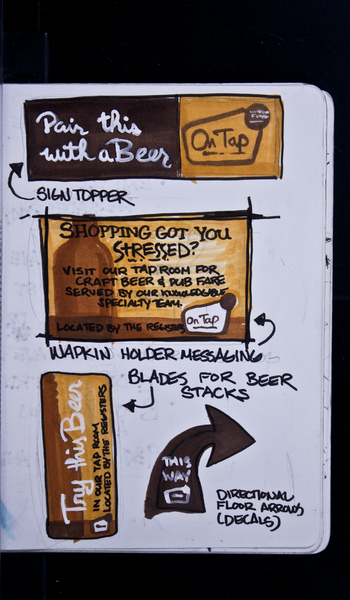 Pair this
with a Beer
On Tap
SIGN TOPPER
SHOPPING GOT YOU
STRESSED?
VISIT OUR TAP ROOM FOR
CRAFT BEER & PUB FARE
SERVED BY OUR KNOWLEDGABLE
SPECIALTY TEAM.
LOCATED BY THE REGISTER
On Tap
NAPKIN HOLDER MESSAGING
BLADES FOR BEER
STACKS
Try this Beer
IN OUR TAP ROOM
LOCATED BY THE REGISTERS
THIS
WAY
DIRECTIONAL
FLOOR ARROWS
(DECALS)